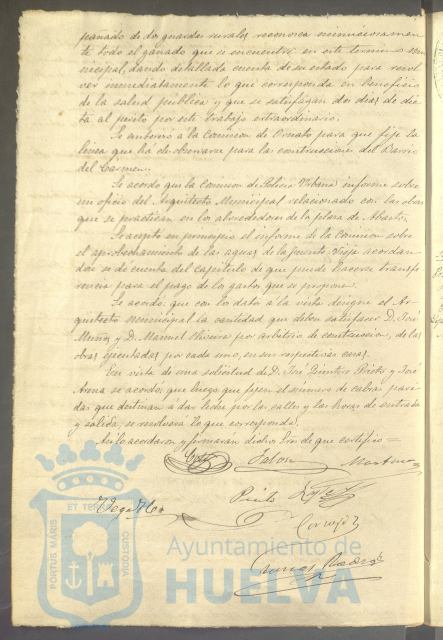 pañado de dos guardas rurales reconosca minuciosamen
te todo el ganado que se encuentre en este termino mu
nicipal, dando detallada cuenta de su estado para resol
ver inmediatamente lo que corresponda en beneficio
de la salud publica y que se satisfagan dos dias de die
ta al perito por este trabajo extraordinario.
Se autorizó a la Comision de Ornato para que fije la
linea que há de observarse para la construccion del Barrio
del Carmen.
Se acordó que la Comision de Policia Urbana informe sobre
un oficio del Arquitecto Municipal relacionado con las obras
que se practican en los alrededores de la plaza de Abastos.
Se aceptó en principio el informe de la Comision sobre
el aprobechamiento de las aguas de la fuente Vieja acordan
dose se dé cuenta del capitulo de que puede hacerse transfe
rencia para el pago de los gastos que se propone.
Se acordó: que con los datos a la vista designe el Ar
quitecto municipal la cantidad que deben satisfacer D. José
Muñoz y D. Manuel Oliveira por arbitrio de construccion, de las
obras ejecutadas por cada uno, en sus respectivas casas.
En vista de una solicitud de D. José y José
Arena se acordó: que luego que fijen el número de cabras pari
das que destinan á dar leche por las calles y las horas de entrada
y salida, se resolverá lo que corresponda.
Asi lo acordaron y firmaran dichos Sres de que certifico =
Pinto
ET TERRÆ
PORTUS MARIS
CUSTODIA
Ayuntamiento de
HUELVA